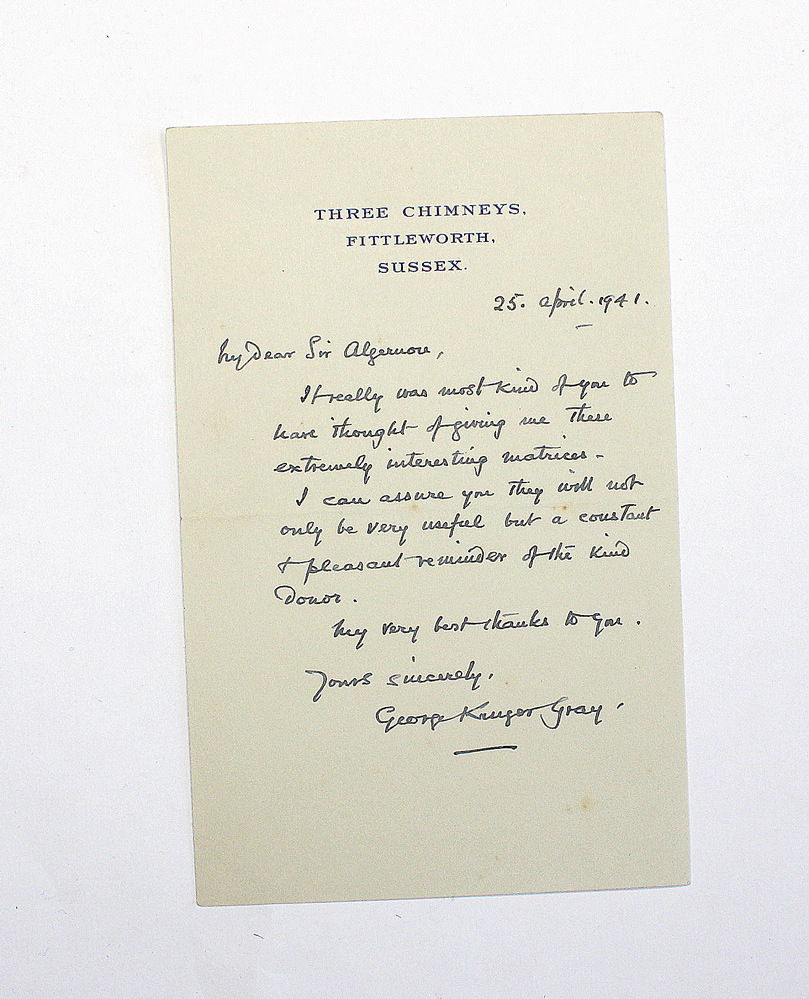 THREE CHIMNEYS,
FITTLEWORTH,
SUSSEX.
25. April. 1941.
My Dear Sir Algernon,
It really was most kind of you to
have thought of giving me these
extremely interesting matrices -
I can assure you they will not
only be very useful but a constant
& pleasant reminder of the kind
Donor.
My very best thanks to you.
Yours sincerely,
George Kruger Gray.